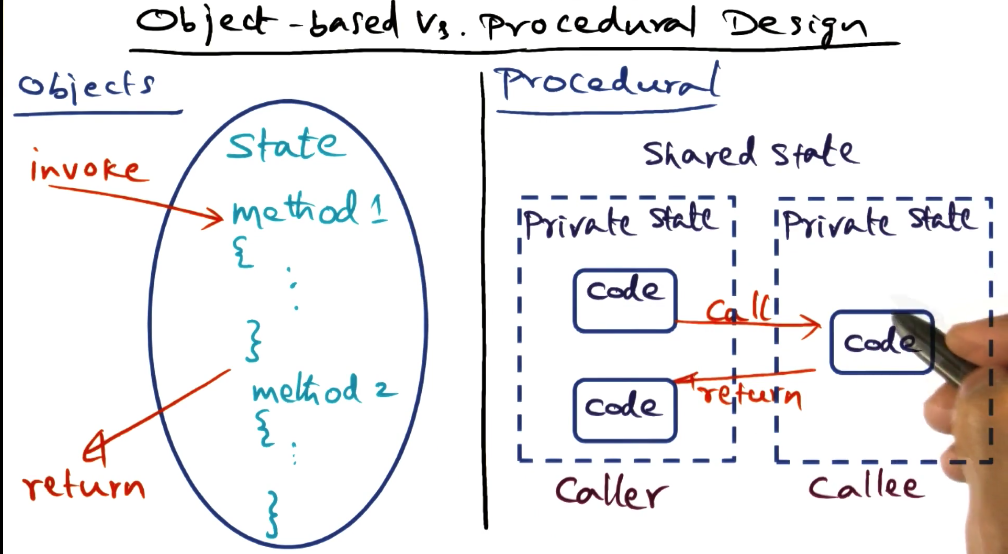 Object-based Vs. Procedural Design
Objects
invoke
State
method 1
{
:
}
method 2
{
:
}
return
Procedural
Shared State
Private State
code
call
code
return
Caller
Private State
code
Callee